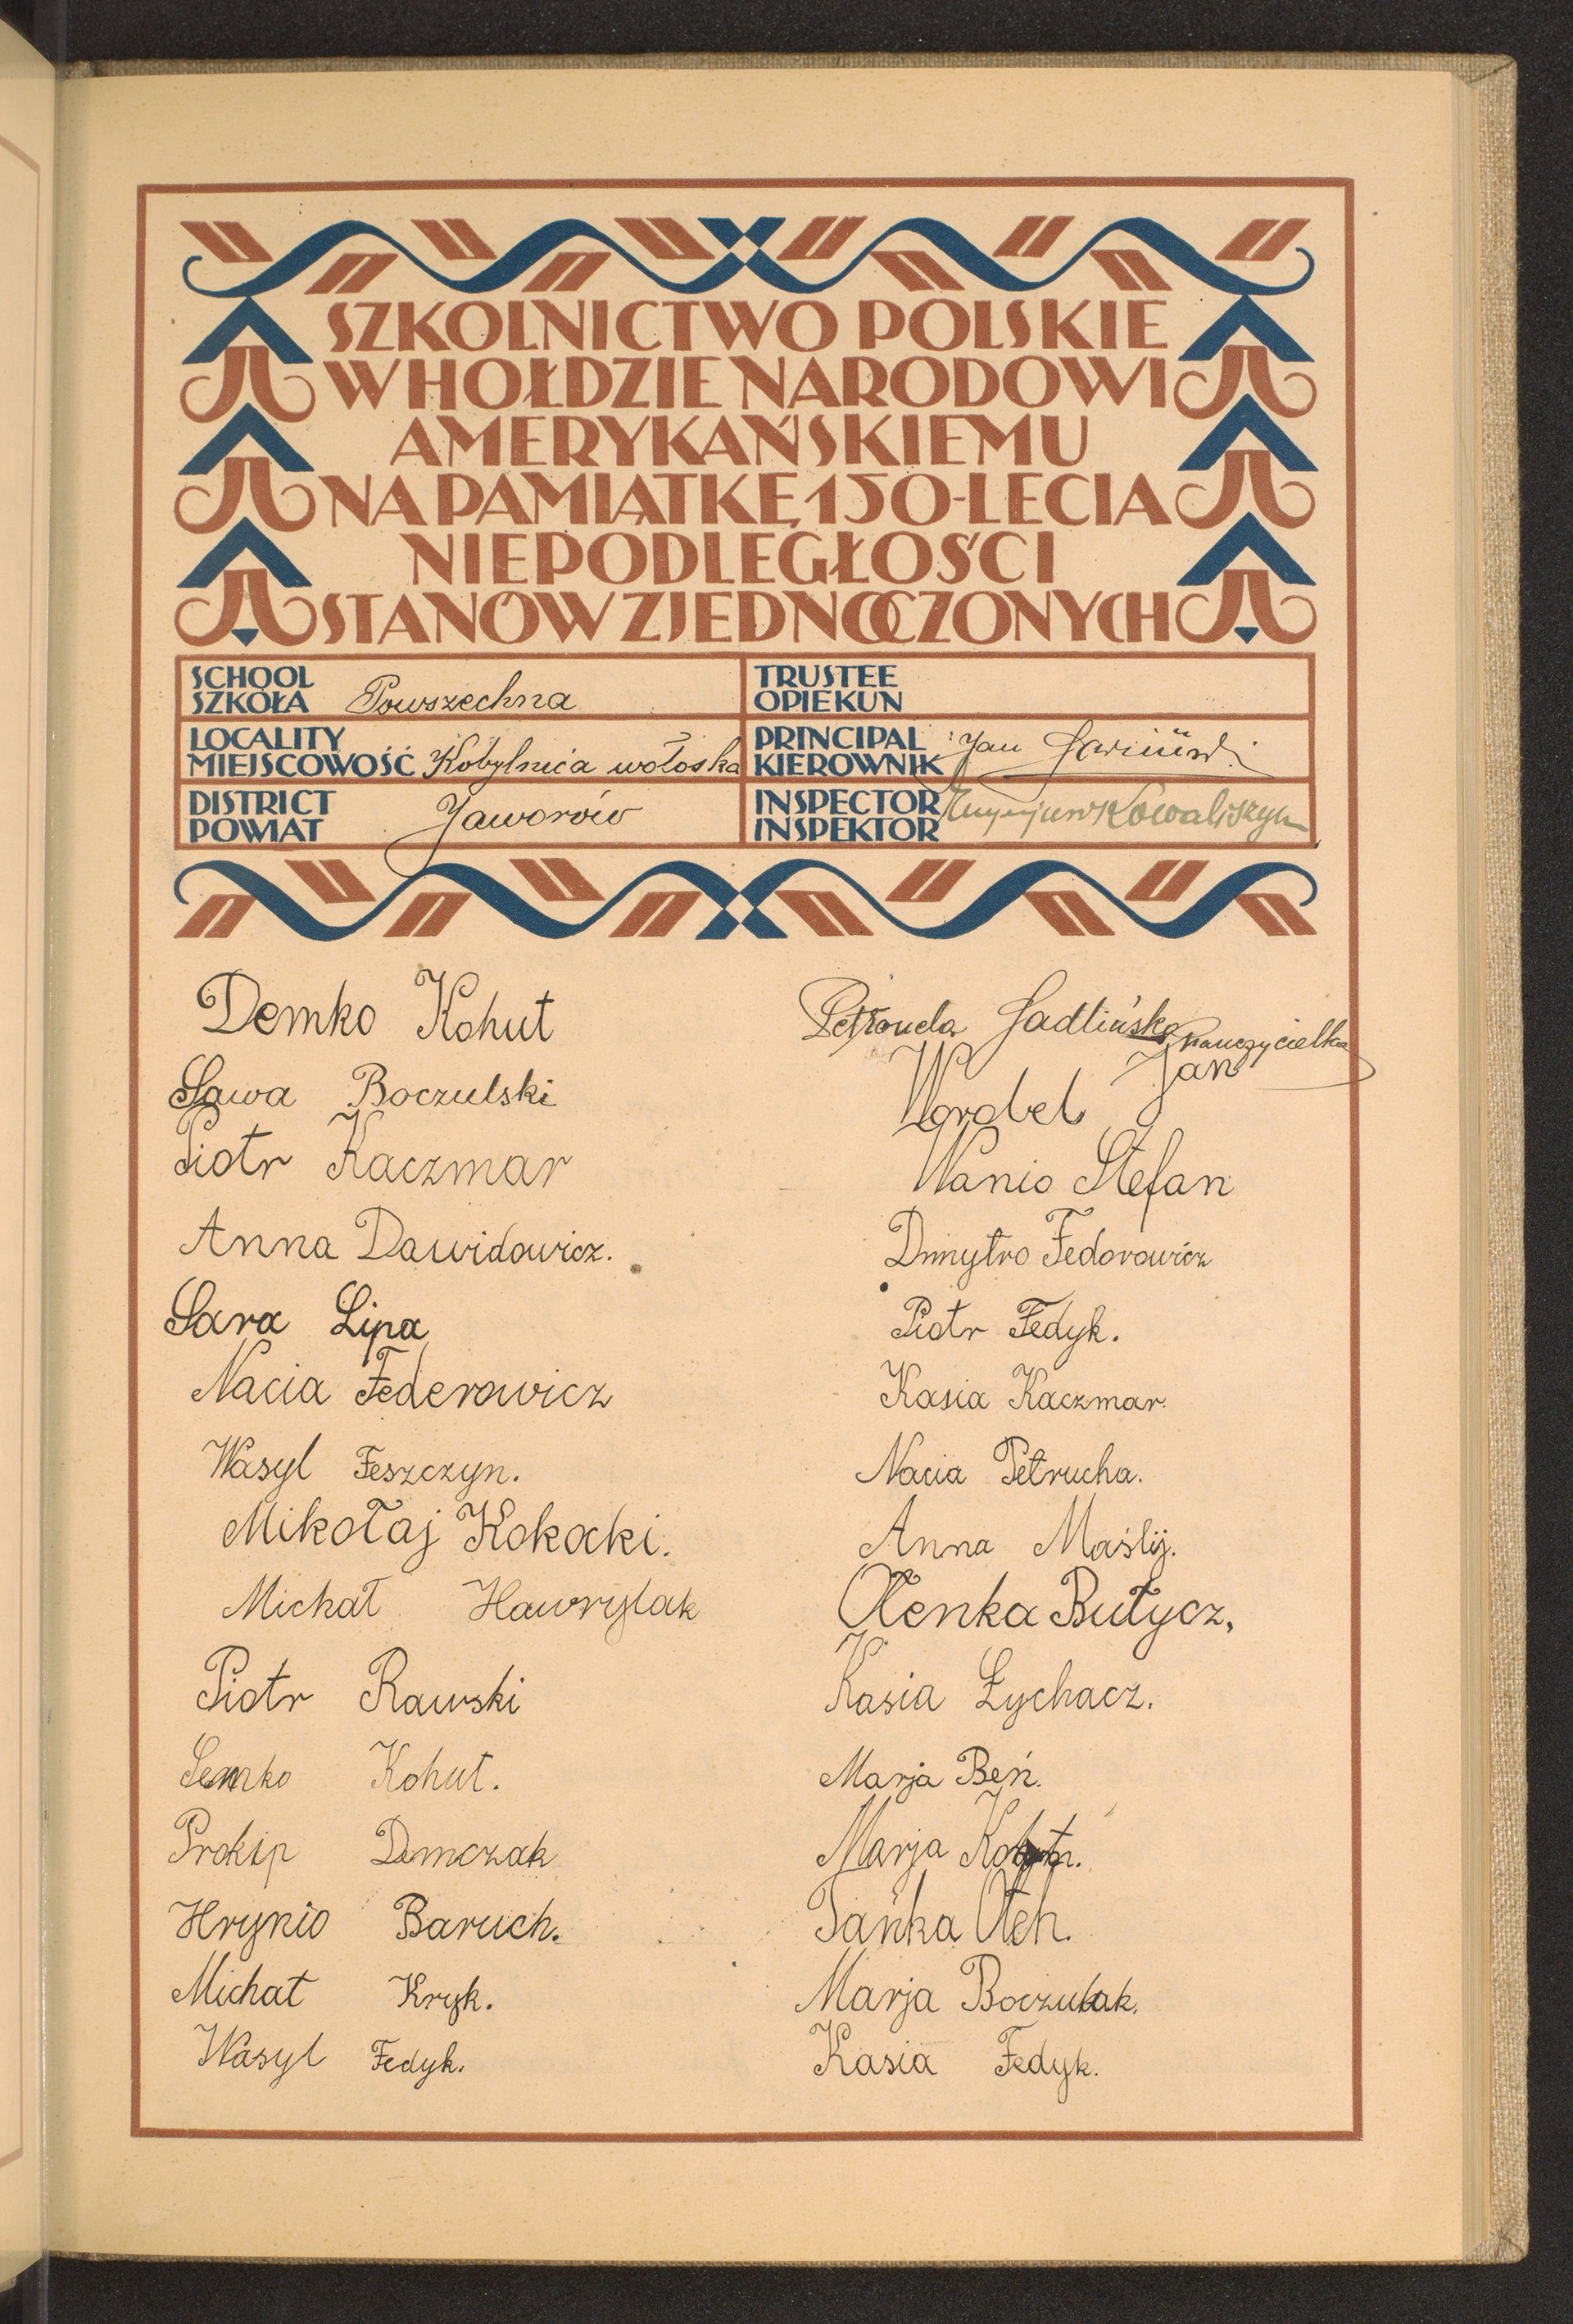 SZKOLNICTWO POLSKIE
W HOŁDZIE NARODOWI
AMERYKAŃSKIEMU
NA PAMIĄTKĘ 150-LECIA
NIEPODLEGŁOŚCI
STANÓW ZJEDNOCZONYCH
SCHOOL
SZKOŁA Powszechna
LOCALITY
MIEJSCOWOŚĆ Kobylnica wołoska
DISTRICT
POWIAT Jaworów
TRUSTEE
OPIEKUN
PRINCIPAL
KIEROWNIK Jan
INSPECTOR
INSPEKTOR Kowaliszyn
Demko Kohut
Sawa Boczulski
Piotr Kaczmar
Anna Dawidowicz.
Sara Lipa
Nacia Federowicz
Wasyl Feszczyn.
Mikołaj Kokocki.
Michał Hawrylak
Piotr Rawski
Semko Kohut.
Prokip Demczak
Hrynio Baruch.
Michał Kryk.
Wasyl Fedyk.
Petronela Sadlińska nauczycielka
Jan
Worobel
Wanio Stefan
Dmytro Fedorowicz
Piotr Fedyk.
Kasia Kaczmar.
Nacia Petrucha.
Anna Maślij.
Ołenka Butycz,
Kasia Łychacz.
Marja Beń.
Marja
Tańka Ołeh.
Marja Boczulak.
Kasia Fedyk.